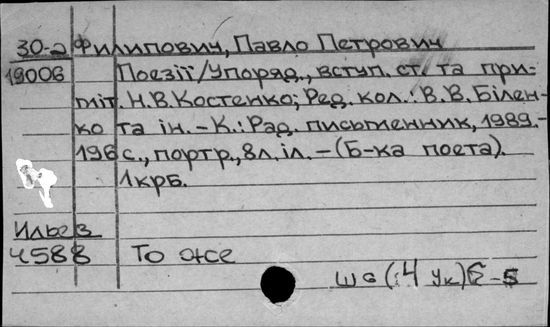 30-2 Филипович, Павло Петрович
19006 Поезії/Упоряд., вступ. ст. та при-
міт. Н.В.Костенко; Ред. кол.: В.В.Білен-
ко та ін. - К.: Рад. письменник, 1989.-
196 с., портр., 8л. іл. - (Б-ка поета).
1крб.
4588 То же